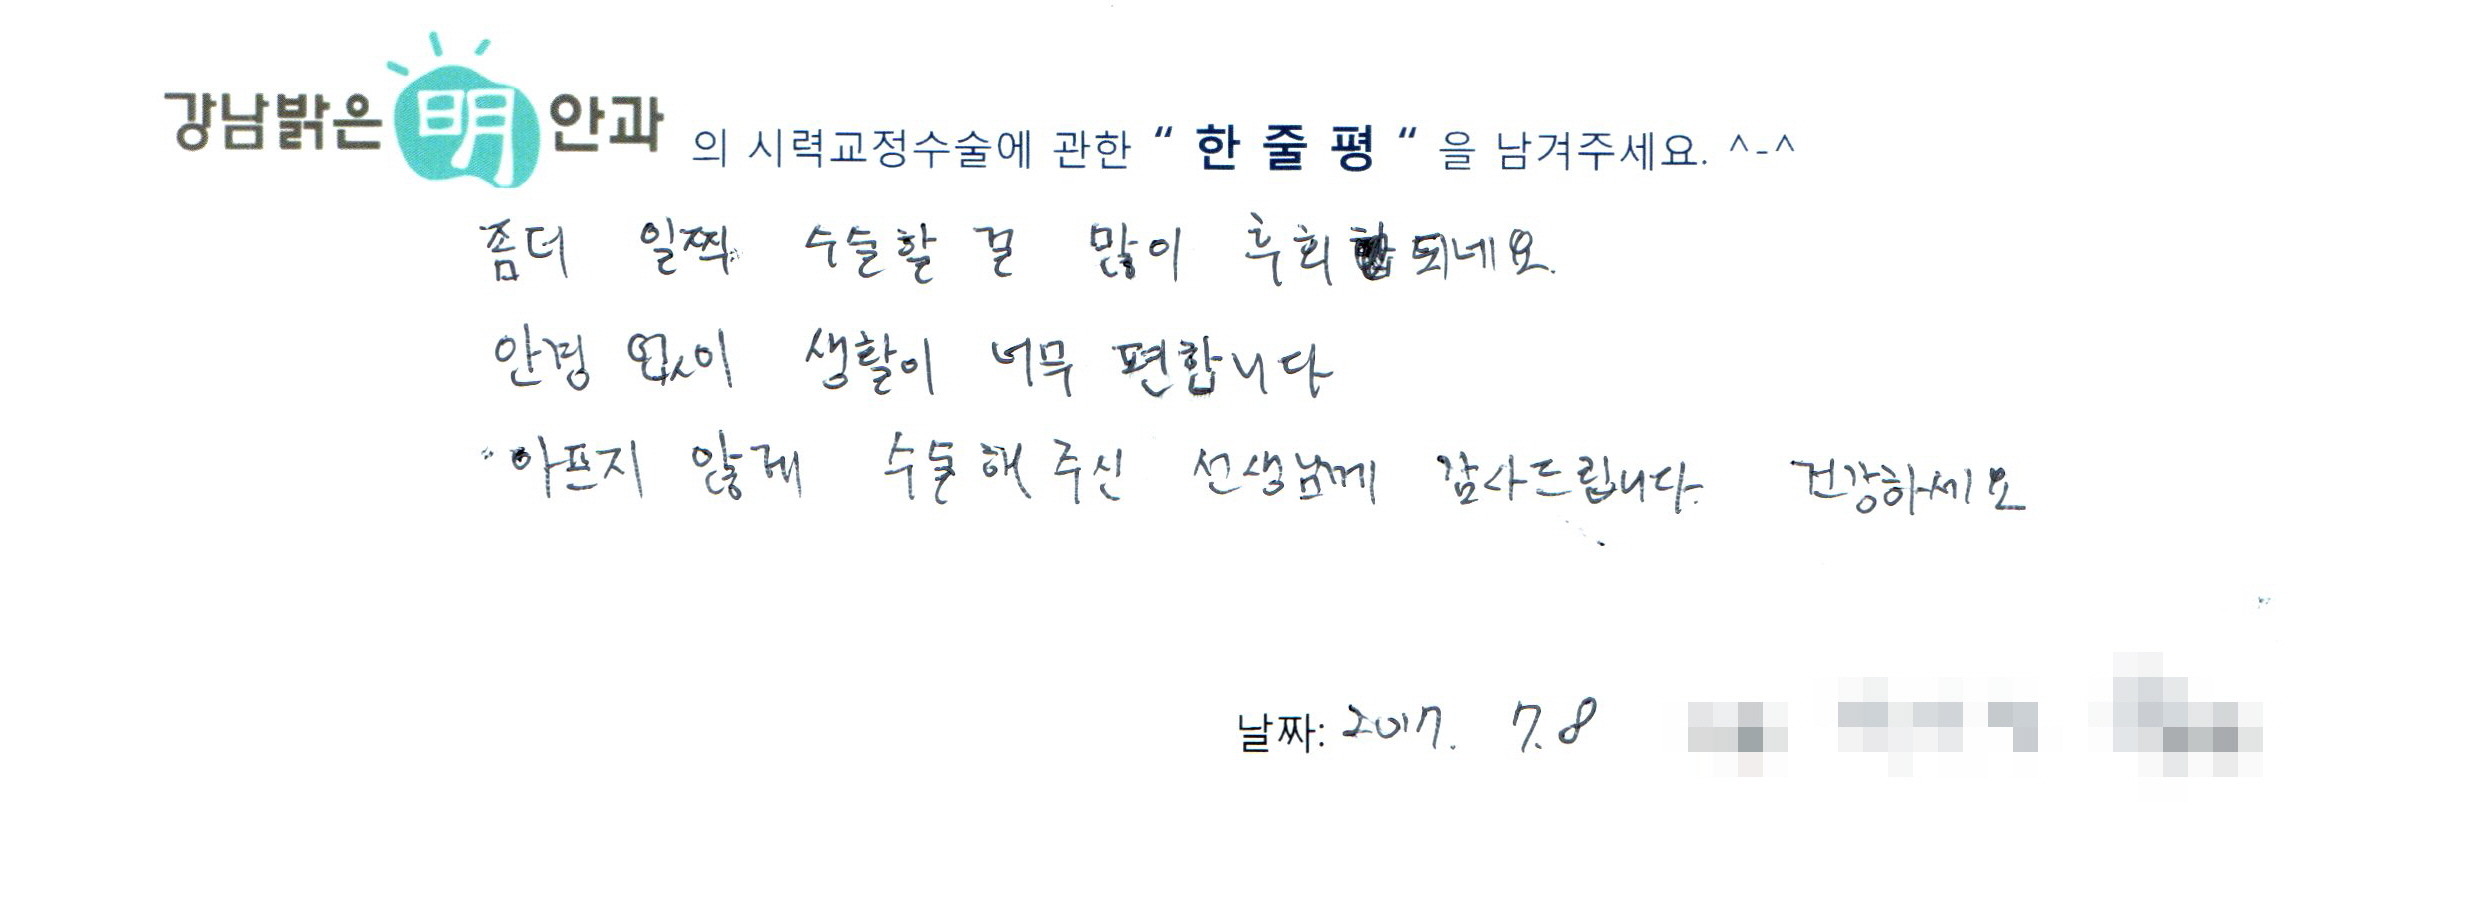 강남밝은 明 안과 의 시력교정수술에 관한 “ 한 줄 평 “ 을 남겨주세요. ^-^
좀더 일찍 수술할 걸 많이 후회 되네요.
안경 없이 생활이 너무 편합니다
아프지 않게 수술해 주신 선생님께 감사드립니다. 건강하세요
날짜: 2017. 7.8